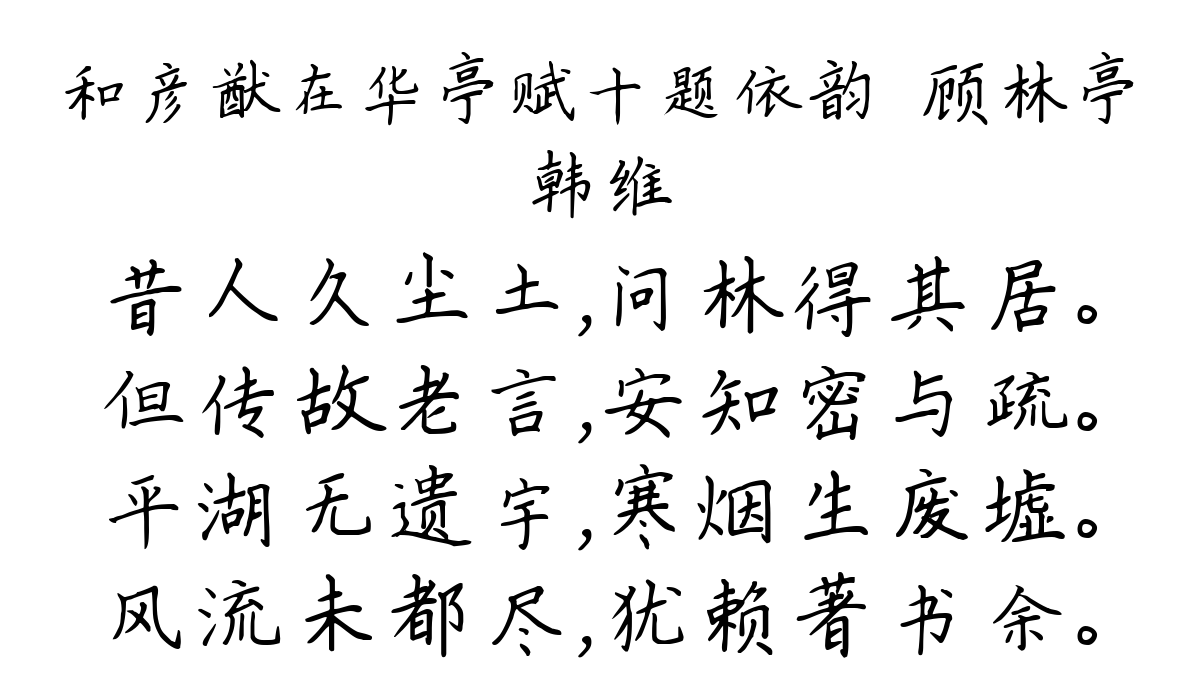 和彦猷在华亭赋十题依韵 顾林亭
韩维
昔人久尘土,问林得其居。
但传故老言,安知密与疏。
平湖无遗宇,寒烟生废墟。
风流未都尽,犹赖著书余。